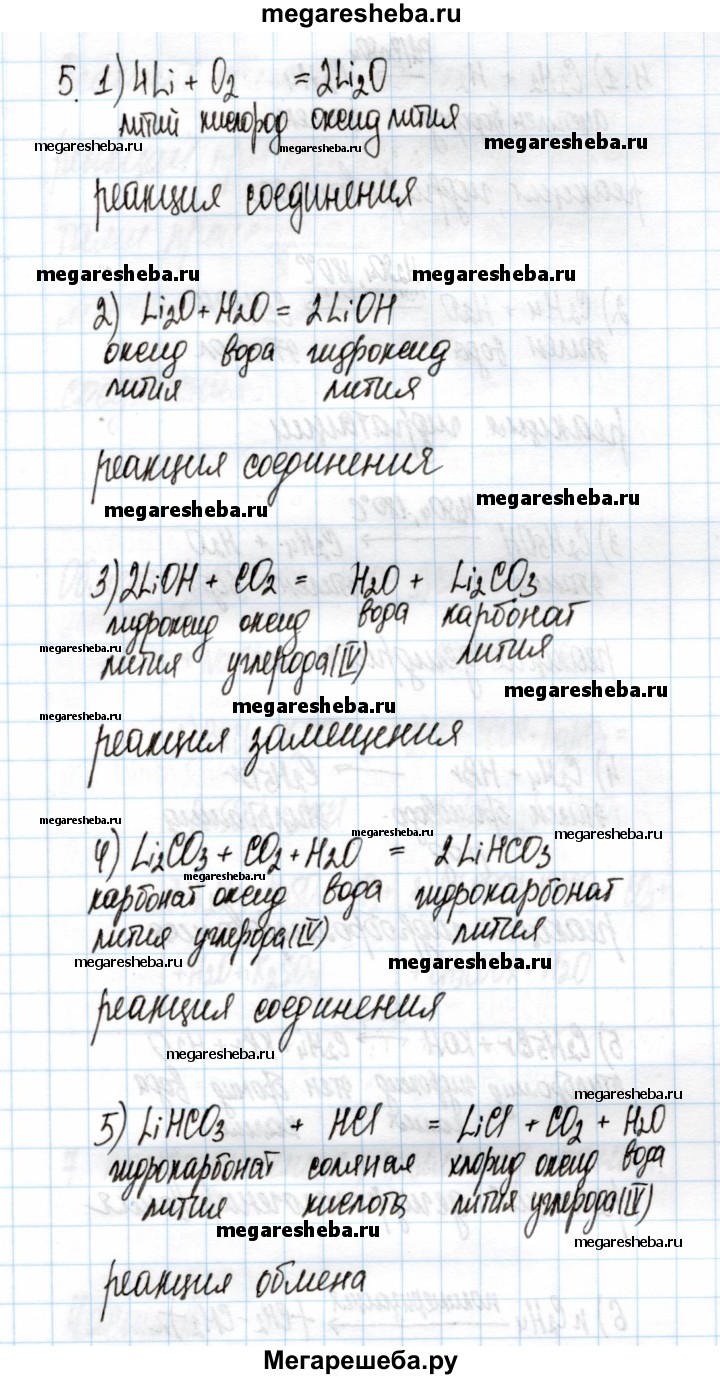 megaresheba.ru
5. 1) 4Li + O2 = 2Li2O
литий кислород оксид лития
megaresheba.ru megaresheba.ru megaresheba.ru
реакция соединения
megaresheba.ru megaresheba.ru
2) Li2O + H2O = 2LiOH
оксид вода гидроксид
лития лития
реакция соединения
megaresheba.ru megaresheba.ru
3) 2LiOH + CO2 = H2O + Li2CO3
гидроксид оксид вода карбонат
megaresheba.ru
лития углерода(IV) лития
megaresheba.ru megaresheba.ru megaresheba.ru
реакция замещения
megaresheba.ru megaresheba.ru megaresheba.ru
4) Li2CO3 + CO2 + H2O = 2LiHCO3
megaresheba.ru
карбонат оксид вода гидрокарбонат
лития углерода(IV) лития
megaresheba.ru megaresheba.ru
реакция соединения
megaresheba.ru
megaresheba.ru
5) LiHCO3 + HCl = LiCl + CO2 + H2O
гидрокарбонат соляная хлорид оксид вода
лития кислота лития углерода(IV)
megaresheba.ru megaresheba.ru
реакция обмена
Мегарешеба.ру